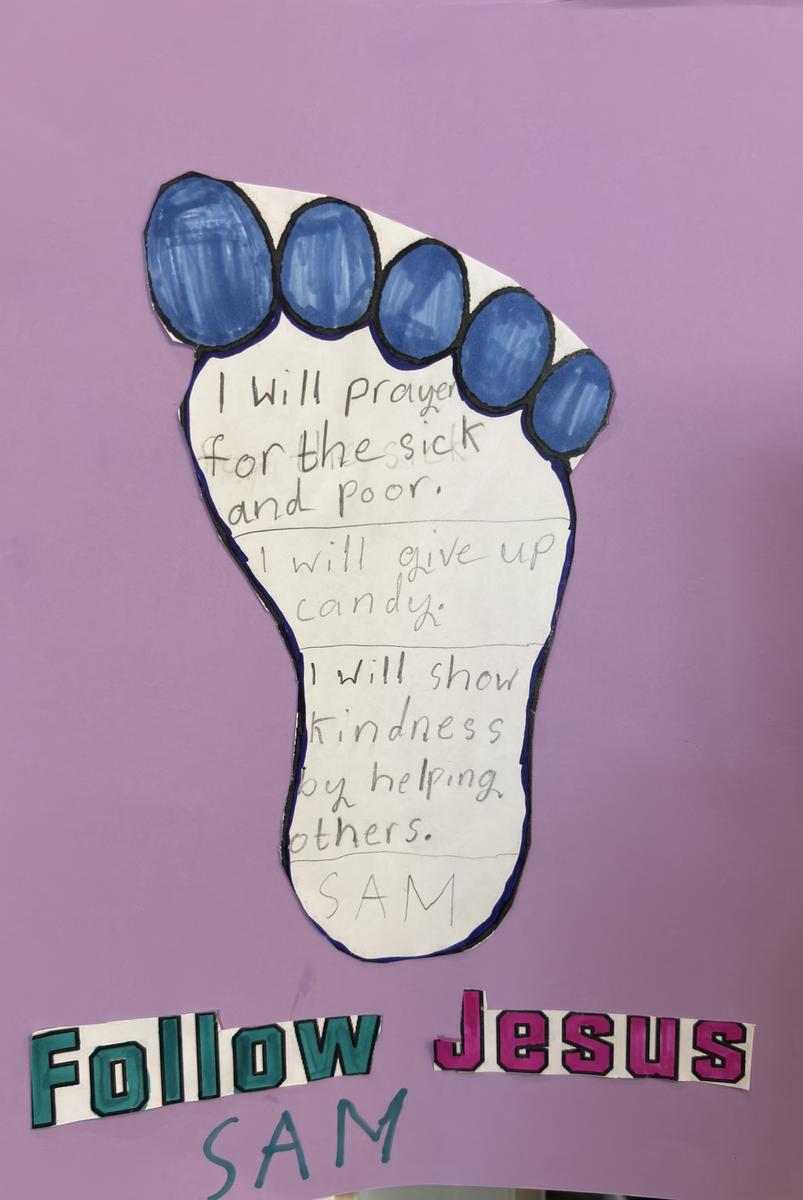 I will prayer
for the sick
and poor.
I will give up
candy.
I will show
kindness
by helping
others.
SAM
Follow Jesus
SAM